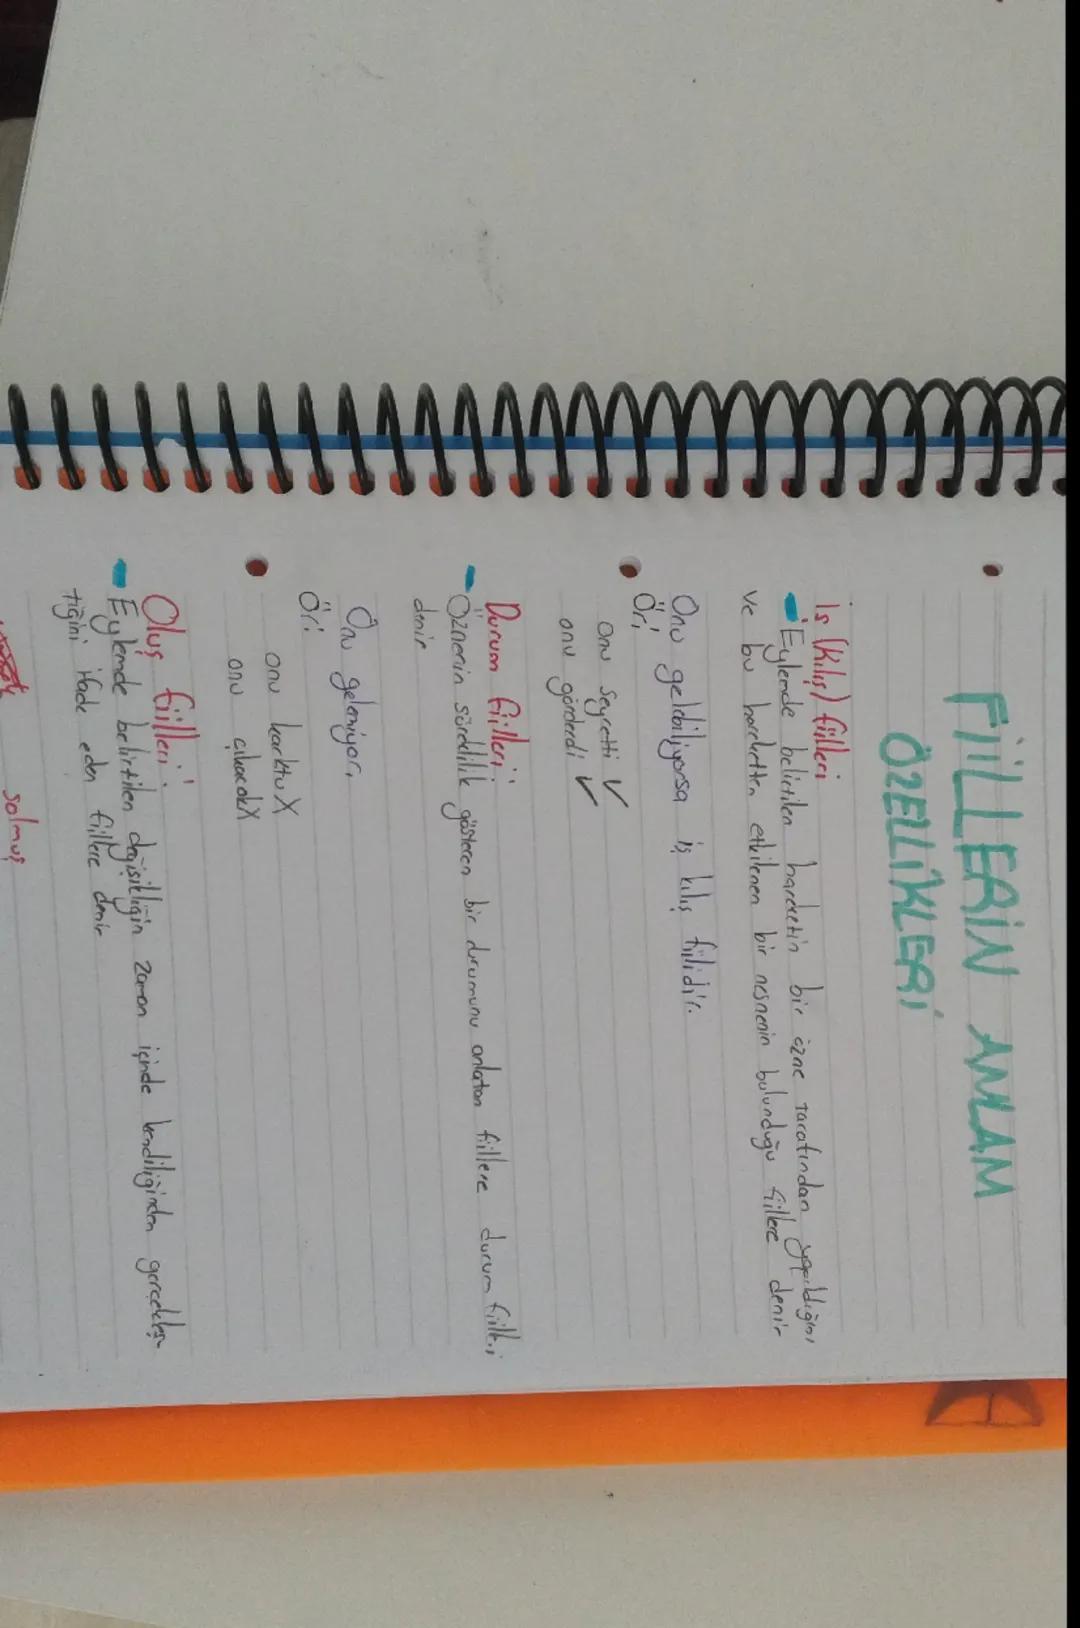 FİİLLERİN ANLAM
ÖZELLİKLERİ
İş (Kılış) fiilleri
Eylemde belirtilen hareketin bir özne tarafından yapıldığını
ve bu hareketten etkilenen bir nesnenin bulunduğu fiillere denir
Onu gelebiliyorsa iş kılış fiilidir.
Ör;
onu seyretti ✓
onu gönderdi ✓
Durum fiilleri;
Öznenin süreklilik gösteren bir durumunu anlatan fiillere durum fiilleri
denir
Onu gelemiyor,
Ör:
onu korktu X
onu çıkacak X
Oluş fiilleri;
Eylemde belirtilen değişikliğin zaman içinde kendiliğinden gerçekleş-
tiğini ifade eden fiillere denir
solmuş